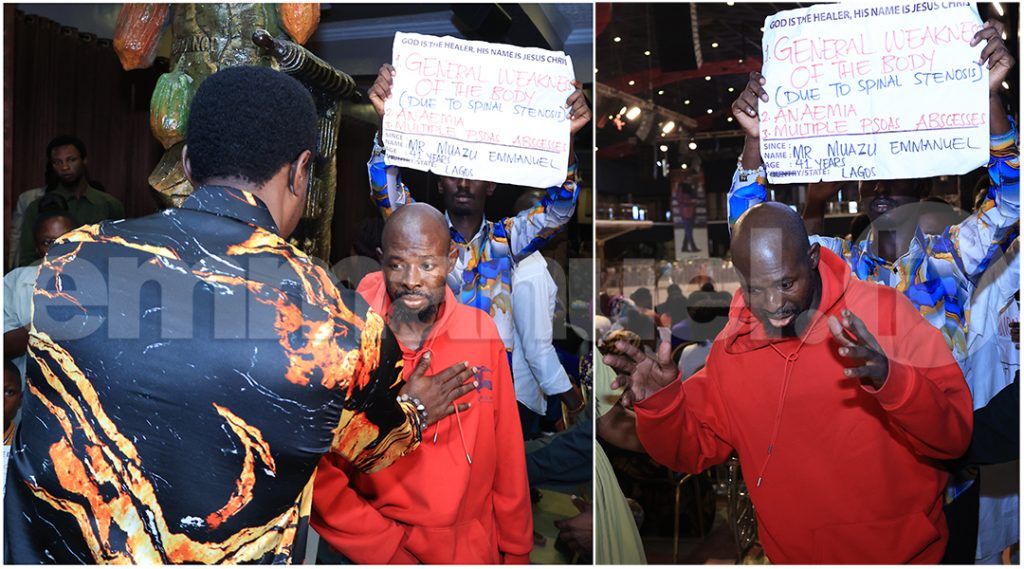 GOD IS THE HEALER, HIS NAME IS JESUS CHRIS
1. GENERAL WEAKNESS
OF THE BODY
(DUE TO SPINAL STENOSIS)
2. ANAEMIA
3. MULTIPLE PSOAS ABSCESSES
SINCE :
NAME : MR MUAZU EMMANUEL
AGE : 41 YEARS
COUNTRY/STATE: LAGOS
GOD IS THE HEALER, HIS NAME IS JESUS CHRIS
1. GENERAL WEAKNESS
OF THE BODY
(DUE TO SPINAL STENOSIS)
2. ANAEMIA
3. MULTIPLE PSOAS ABSCESSES
SINCE :
NAME : MR MUAZU EMMANUEL
AGE : 41 YEARS
COUNTRY/STATE: LAGOS
emmanuel.TV